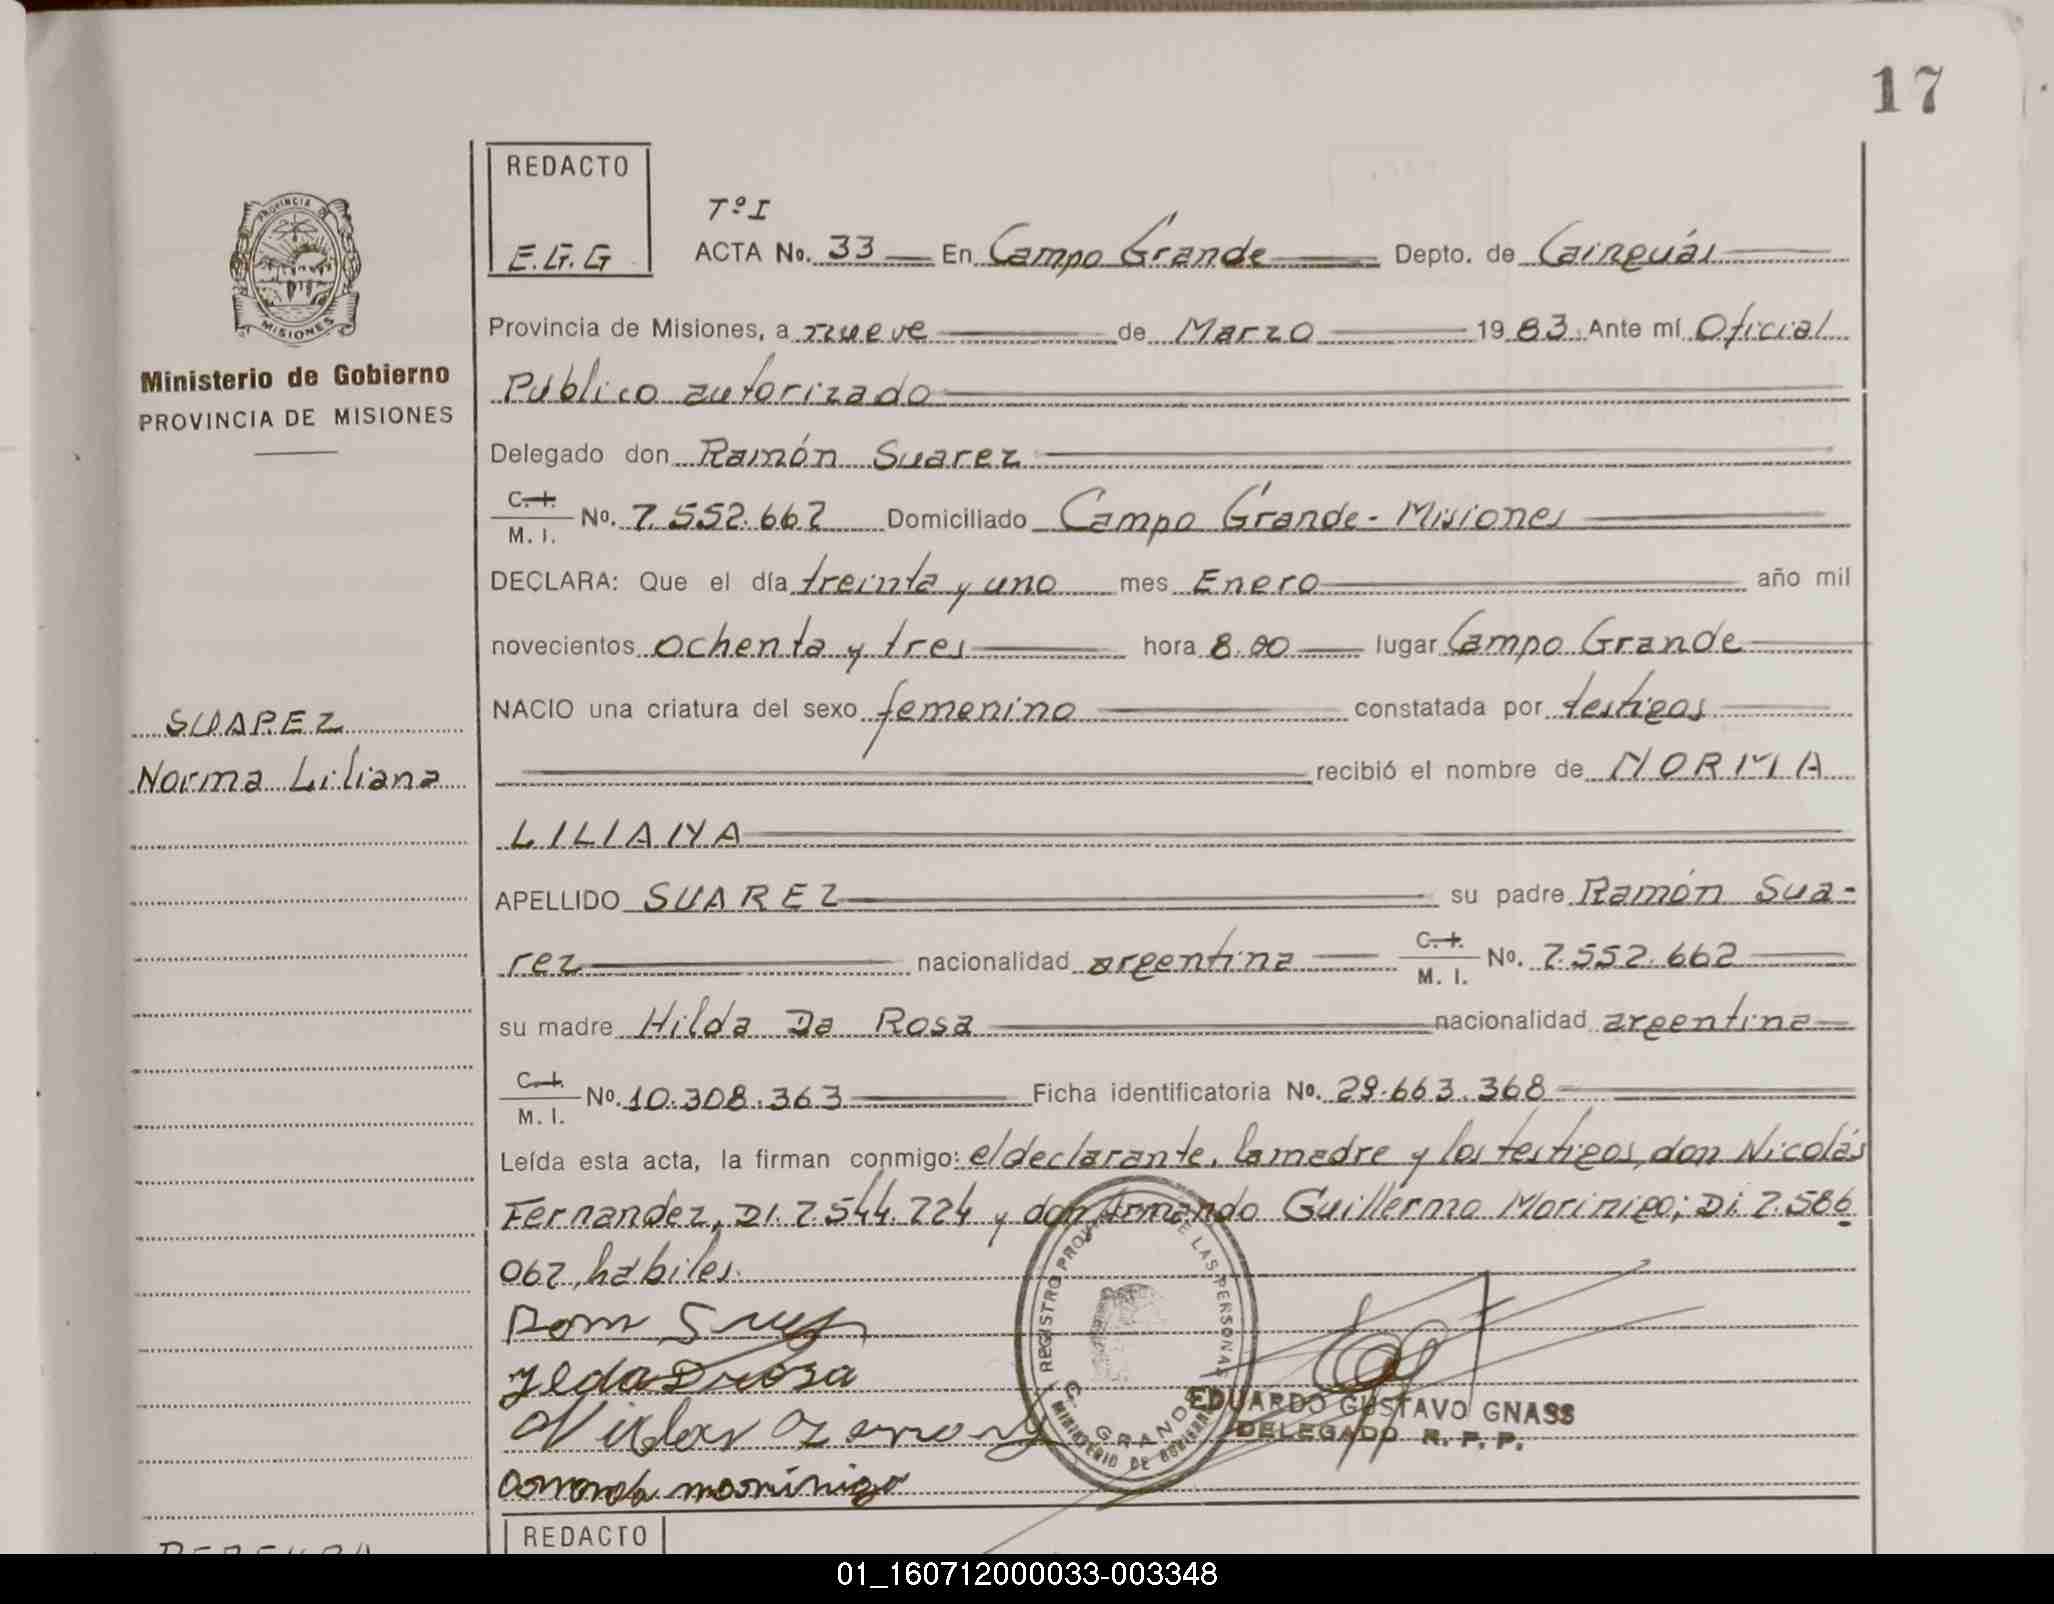 17
REDACTO
E.G.G
Tº I
ACTA No. 33 En Campo Grande Depto. de Cainguás
Provincia de Misiones, a nueve de Marzo 1983. Ante mí Oficial
Público autorizado
Delegado don Ramón Suarez
C. I.
M. I.
No. 7.552.662 Domiciliado Campo Grande - Misiones
DECLARA: Que el día treinta y uno mes Enero año mil
novecientos ochenta y tres hora 8.00 lugar Campo Grande
NACIO una criatura del sexo femenino constatada por testigos
recibió el nombre de NORMA
LILIANA
APELLIDO SUAREZ su padre Ramón Sua-
rez nacionalidad argentina C. I. M. I. No. 7.552.662
su madre Hilda Da Rosa nacionalidad argentina
C. I.
M. I.
No. 10.308.363 Ficha identificatoria No. 29.663.368
Leída esta acta, la firman conmigo: el declarante, la madre y los testigos, don Nicolás
Fernandez, DI. 7.544.224 y don Armando Guillermo Morinigo; DI 7.586
062, hábiles.
PROVINCIA DE
MISIONES
Ministerio de Gobierno
PROVINCIA DE MISIONES
SUAREZ
Norma Liliana
REGISTRO PROV DE LAS PERSONAS
C. GRANDE
MINISTERIO DE GOBIERNO
EDUARDO GUSTAVO GNASS
DELEGADO R. P. P.
REDACTO
01_160712000033-003348